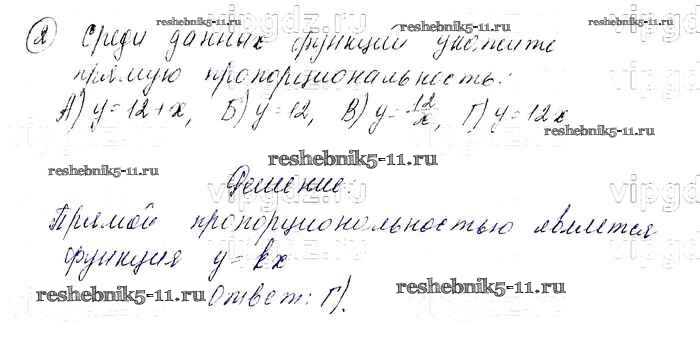 2) Среди данных функций укажите
прямую пропорциональность:
А) y=12+x, Б) y=12, В) y=12/x, Г) y=12x
Решение:
Прямой пропорциональностью является
функция y=kx
Ответ: Г).
reshebnik5-11.ru
reshebnik5-11.ru
reshebnik5-11.ru
reshebnik5-11.ru
reshebnik5-11.ru
reshebnik5-11.ru
reshebnik5-11.ru
vipgdz.ru
vipgdz.ru
vipgdz.ru
vipgdz.ru